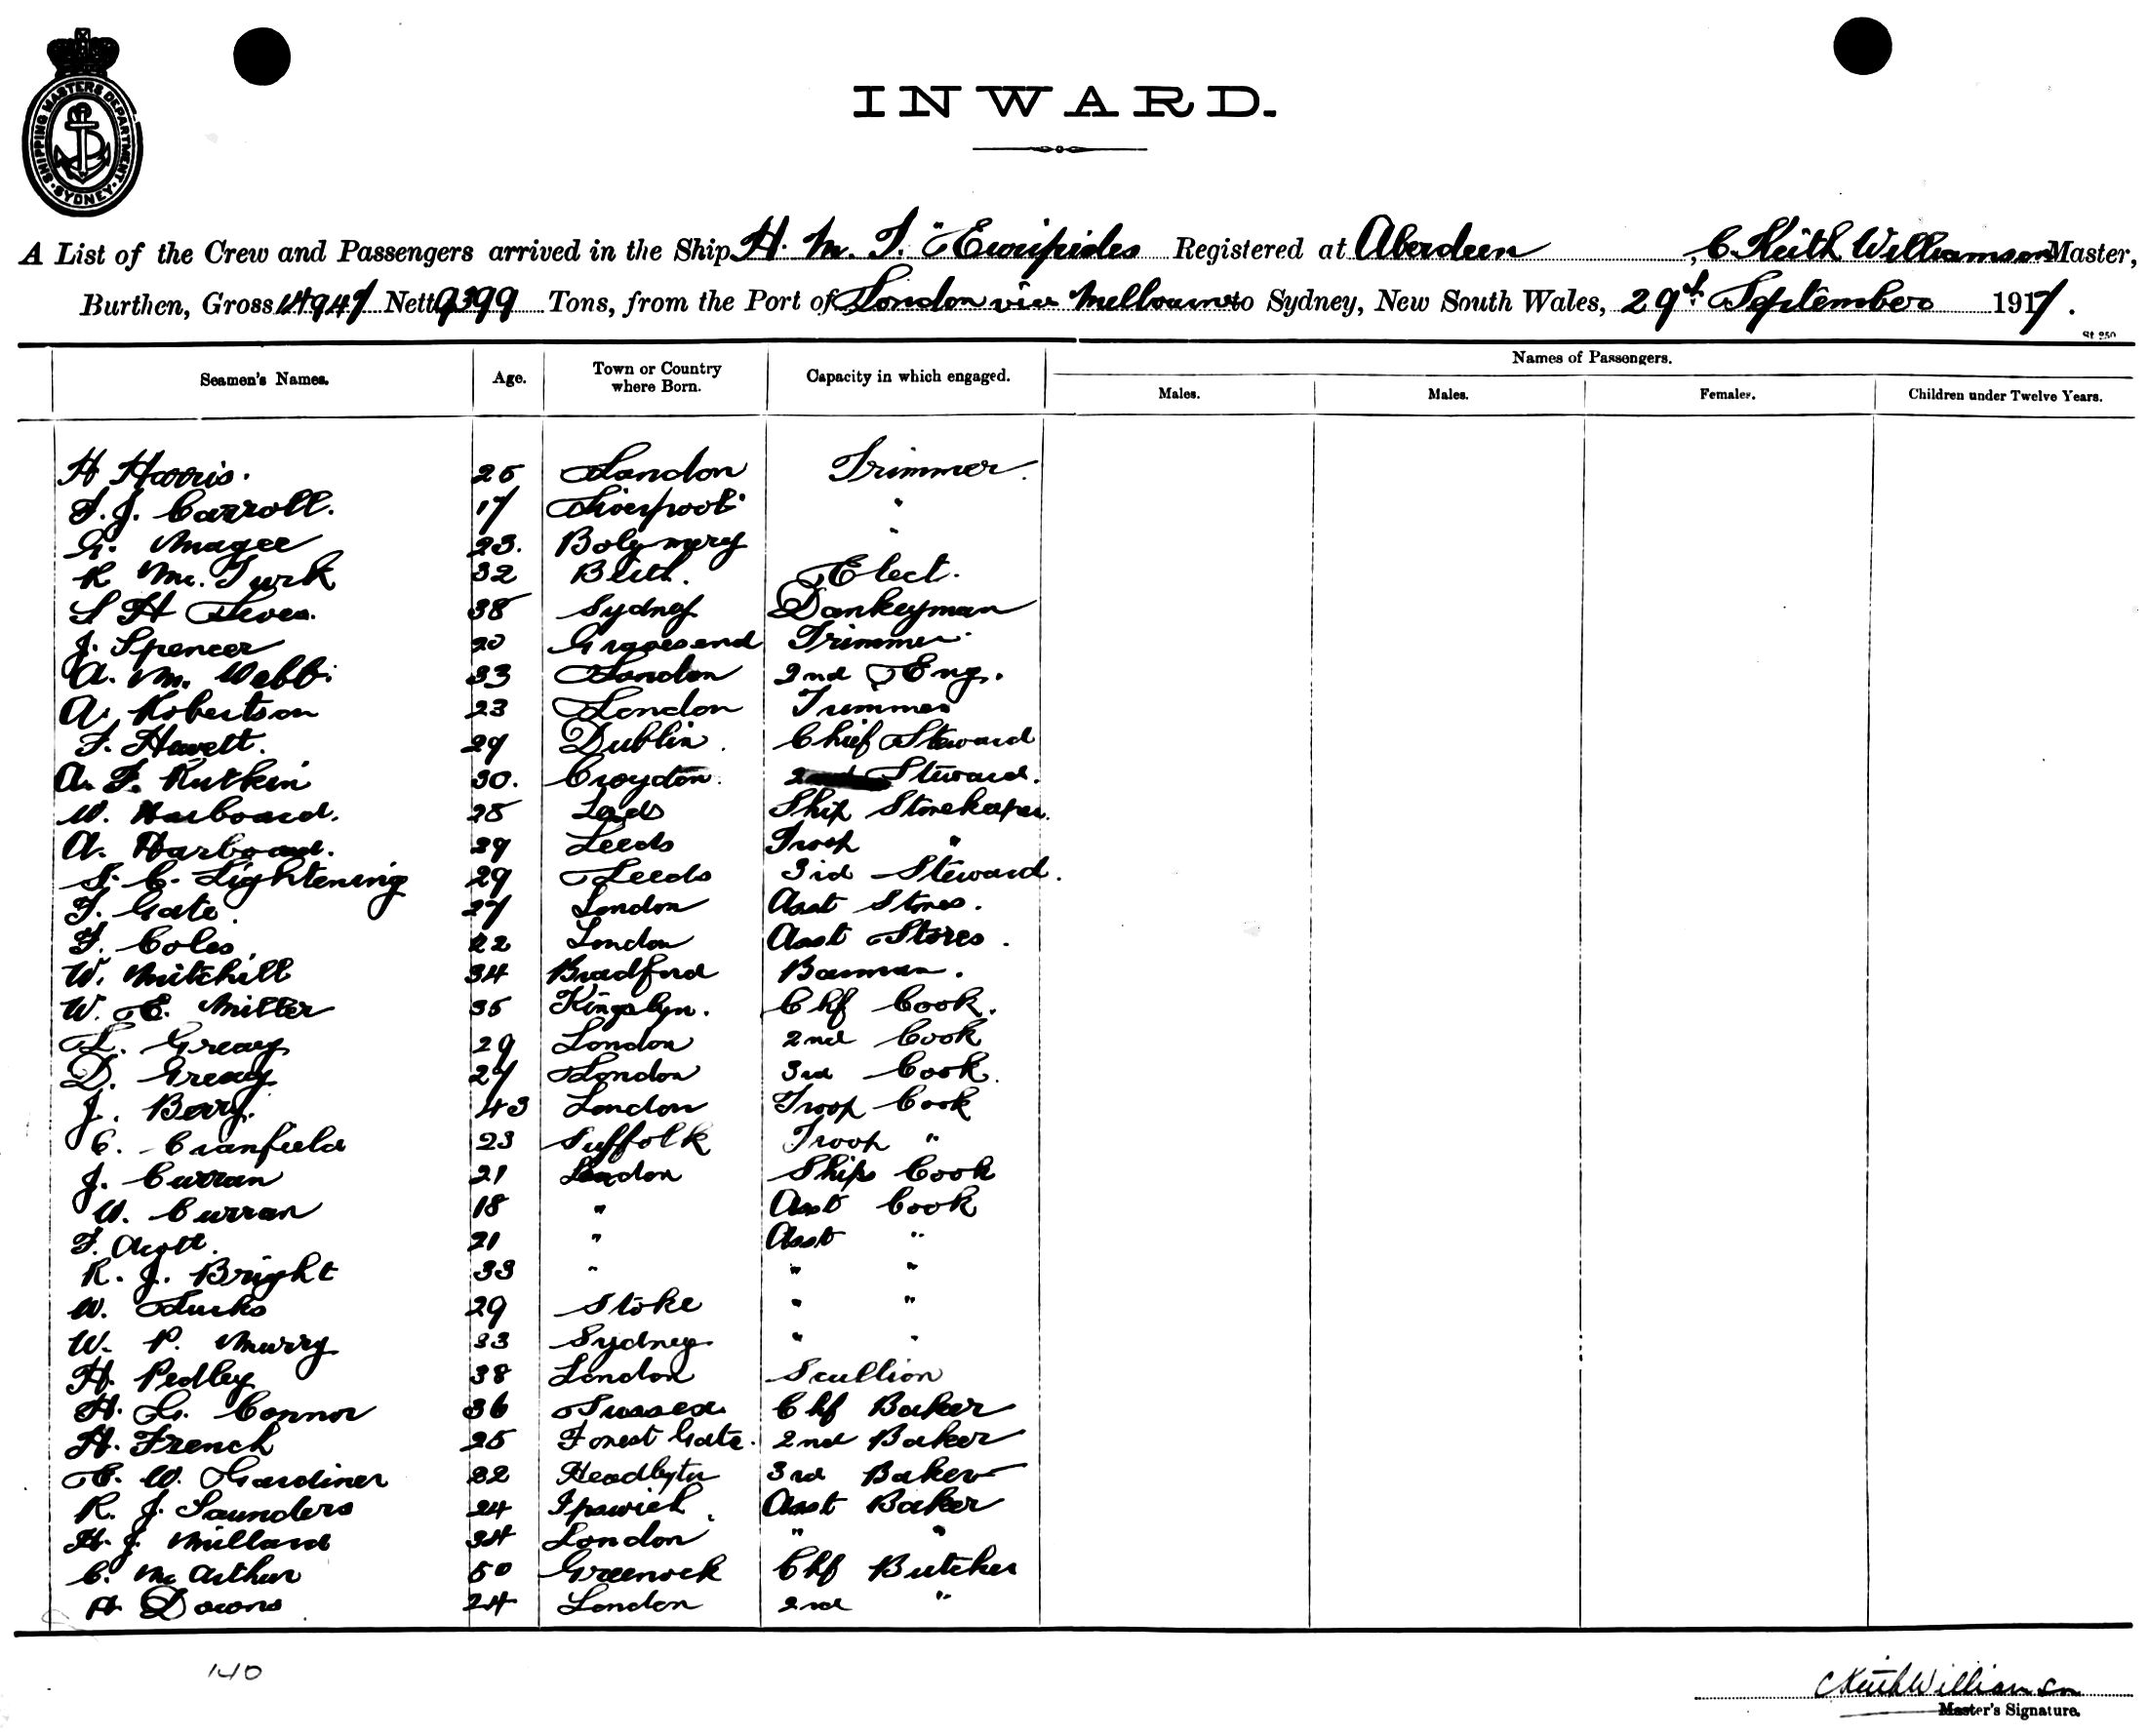 SHIPPING MASTERS DEPARTMENT
SYDNEY
INWARD.
A List of the Crew and Passengers arrived in the Ship H. M. T. "Euripides Registered at Aberdeen, C. Keith Williamson Master,
Burthen, Gross 14947 Nett 9399 Tons, from the Port of London via Melbourne to Sydney, New South Wales, 29th September 1917.
St 250
Seamen's Names. Age. Town or Country where Born. Capacity in which engaged. Names of Passengers.
Males. Males. Females. Children under Twelve Years.
H Harris. 25 London Trimmer.
T. J. Carroll. 17 Liverpool "
G. Magee 23. "
R Mc. Turk 32 Elect.
S H 38 Sydney Donkeyman
J. Spencer 20 Gravesend Trimmer
A. M. Webb. 33 London 2nd Eng.
A. Robertson 23 London Trimmer
T. Hewett. 29 Dublin. Chief Steward
A. F. Rutkin 30. Croydon. 2nd Steward.
W. Harboard. 28 Leeds Ship Storekeeper.
A. Harboard. 39 Leeds Troop "
S. C. Lightening 29 Leeds 3rd Steward.
T. Gate. 27 London Asst Stores.
F. Coles 22 London Asst Stores.
W. Mitchill 34 Bradford Barman.
W. E. Miller 35 Kingslyn. Chf Cook.
L. Greay 29 London 2nd Cook
D. Greay 27 London 3rd Cook.
J. Berry. 43 London Troop Cook
C. Cranfield 23 Suffolk Troop "
J. Curran 21 London Ship Cook
W. Curran 18 " Asst Cook
F. 21 " Asst "
R. J. Bright 33 " " "
W. 29 Stoke " "
W. P. Murry 33 Sydney " "
H. Pedley 38 London Scullion
H. G. Connor 36 Sussex Chf Baker
H. French 25 Forest Gate. 2nd Baker
E. W. Gardiner 22 3rd Baker
R. J. Saunders 24 Ipswich. Asst Baker
H. J. Millard 34 London " "
C. McArthur 50 Greenock Chf Butcher
A Downs 24 London 2nd "
140
C Keith Williamson
Master's Signature.